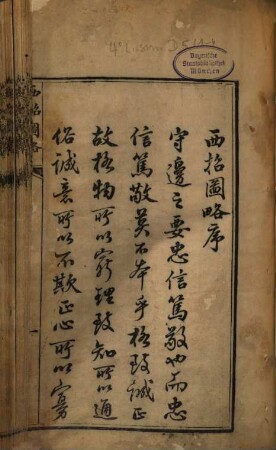 西招圖略序
守邊之要忠信篤敬也而忠
信篤敬莫不本乎格致誠正
故格物所以窮理致知所以通
俗誠意所以不欺正心所以寡
西招圖略
Bayerische
Staatsbibliothek
München